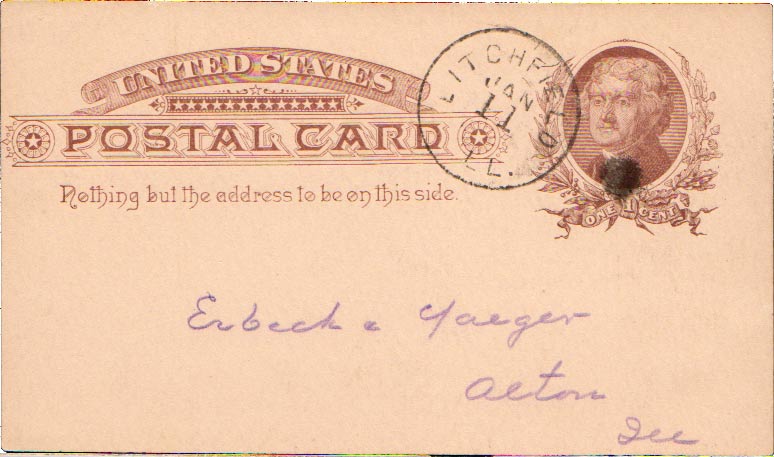 UNITED STATES
POSTAL CARD
Nothing but the address to be on this side.
LITCHFIELD
JAN
11
ILL.
ONE 1 CENT
Erbeck & Yaeger
Alton
Ill